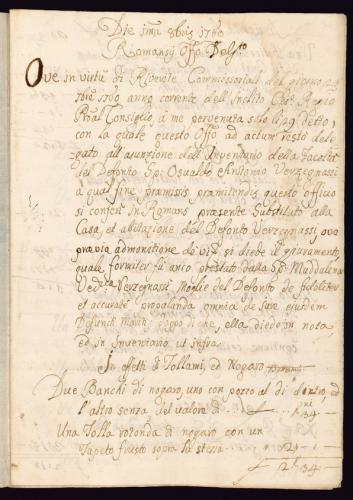 Die ima 8bris 1760
Romansij Offo Delgto
Ove in virtù di Riverite Commissoriali del giorno
7bre 1760 anno corrente dell'Inclito Ces: Regio
Prõal Consiglio, à me pervenuta solo li 29 detto,
con la quale questo Offo ad actum resto dele-
gato all'asunzione dell'Inventario della Facoltà
del Defonto Sp: Osualdo Antonio Verzegnassi
à qual fine præmissis præmitendis questo officio
si conferì in Romans præsente Substituto alla
Casa, et abitazione del Defonto Verzegnassi, ove
prævia admonitione de vi si diede il giuramento,
quale formiter fù anco prestato dalla Sa Maddalena
Veda Verzegnassi Moglie del Defonto de fideliter
et accurate propalanda omnia de jure ejusdem
Defuncti Mariti, doppo di che, ella diede in nota,
ed in Inventario ut infra.
In effetti di Tollami, ed Nogaro
Due Banchi di nogaro, uno con pozzo al di dentro ed
l'altro senza del valore di 34
Una Tolla rotonda di nogaro con un
Tapeto frusto sopra la stessa
34